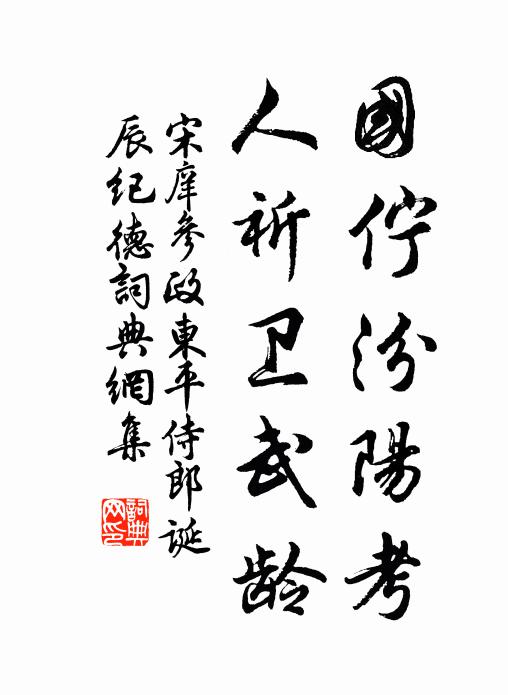 國佇汾陽考
人祈卫武龄
宋庠參政東平侍郎誕
辰紀德詞典網集
詞典
网印